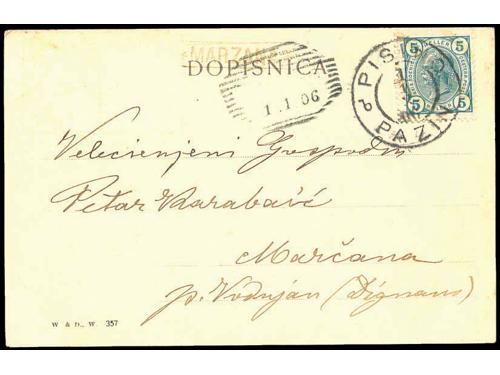 MARZANA
DOPISNICA
1.1.06
PISINO
PAZIN
5 HELLER 5
5 5
Velecienjeni Gospodin
Petar Karabaić
Marčana
p. Vodnjan (Dignano)
W & D., W. 357